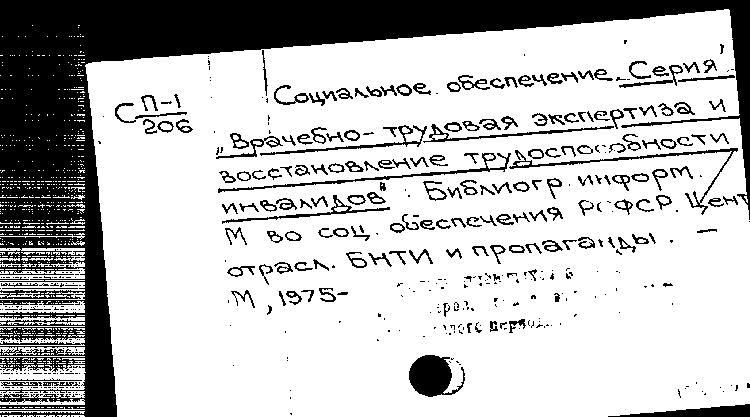 С П-1
206
Социальное обеспечение. Серия
„Врачебно-трудовая экспертиза и
восстановление трудоспособности
инвалидов". Библиогр. информ.
М во соц. обеспечения РСФСР. Цент
отрасл. БНТИ и пропаганды. —
М, 1975-